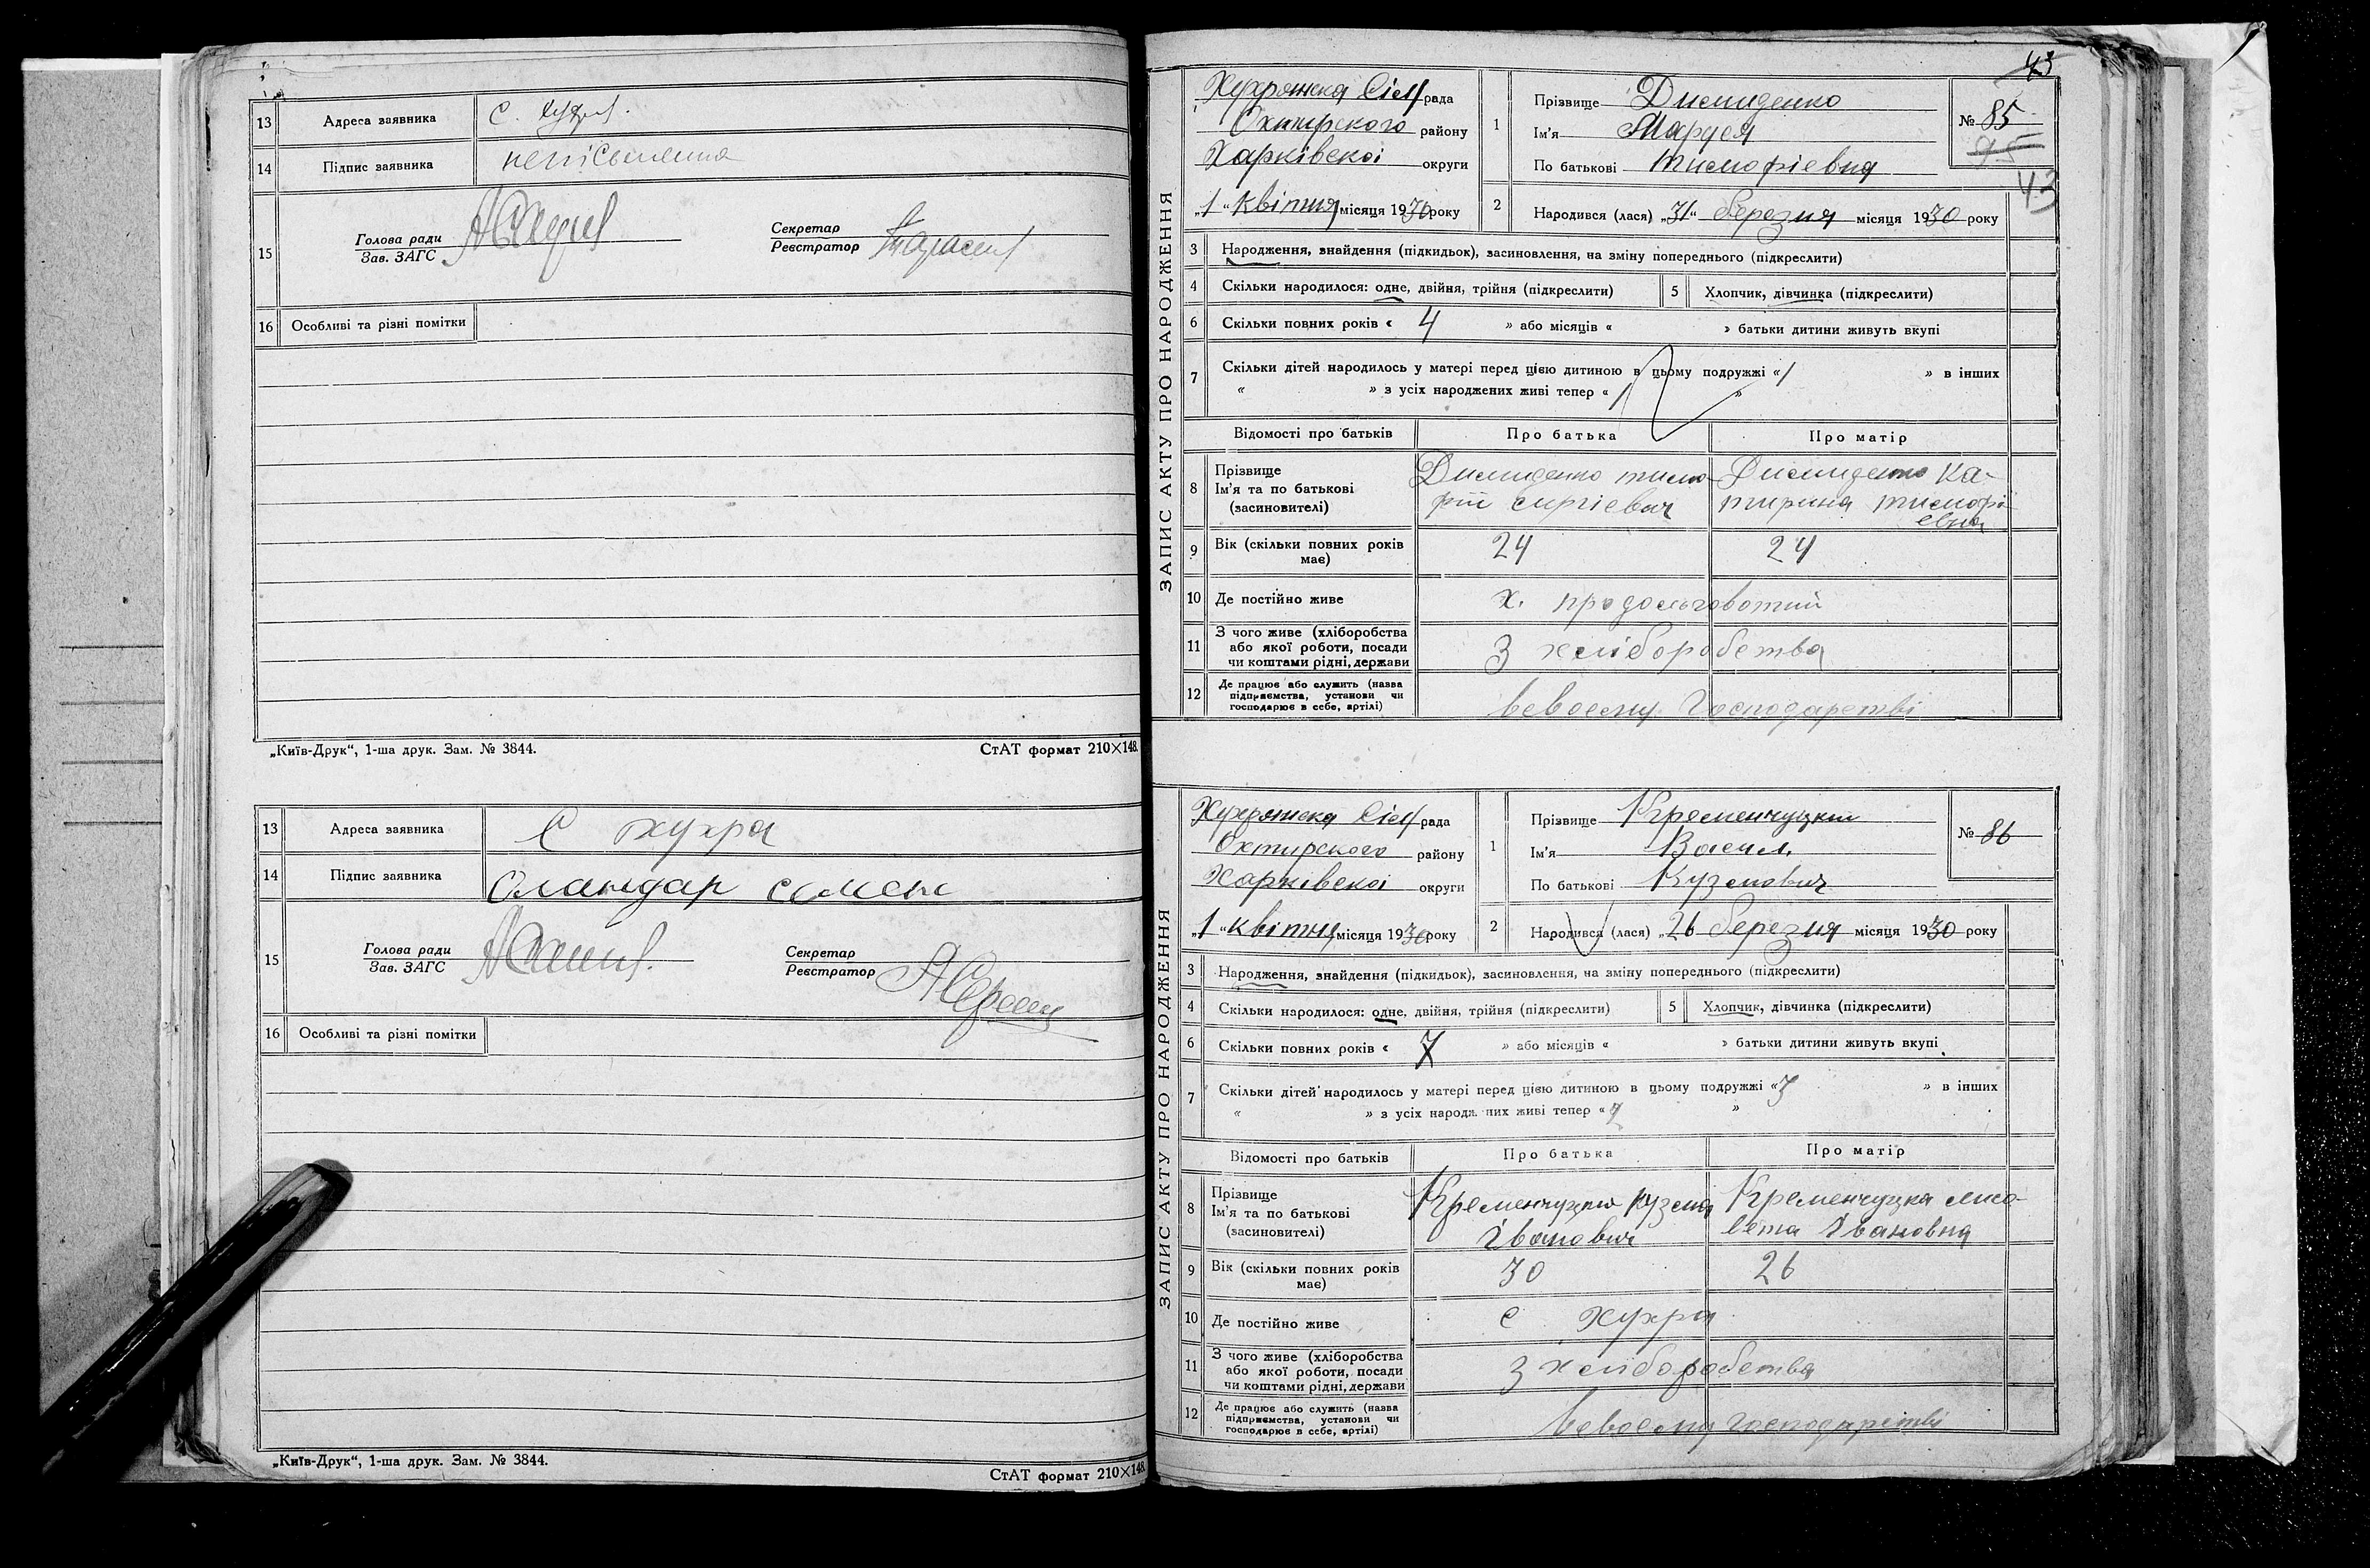 13 Адреса заявника С. Хухра.
14 Підпис заявника неписьменна
15 Голова ради
Зав. ЗАГС
Секретар
Реєстратор
16 Особливі та різні помітки
„Київ-Друк“, 1-ша друк. Зам. № 3844. СтАТ формат 210×148.
13 Адреса заявника С хухра
14 Підпис заявника Оландар семен
15 Голова ради
Зав. ЗАГС
Секретар
Реєстратор
16 Особливі та різні помітки
„Київ-Друк“, 1-ша друк. Зам. № 3844.
СтАТ формат 210×148.
43
ЗАПИС АКТУ ПРО НАРОДЖЕННЯ
Хухрянска Сіл рада
Охтирского району
Харківскоі округи
„1“ квітня місяця 1930 року
1 Прізвище Димиденко
Ім'я
По батькові тимофіевна
№ 85
95
43
2 Народився (лася) „31“ березня місяця 1930 року
3 Народження, знайдення (підкидьок), засиновлення, на зміну попереднього (підкреслити)
4 Скільки народилося: одне, двійня, трійня (підкреслити) 5 Хлопчик, дівчинка (підкреслити)
6 Скільки повних років « 4 » або місяців « » батьки дитини живуть вкупі
7 Скільки дітей народилось у матері перед цією дитиною в цьому подружжі « 1 » в інших
« » з усіх народжених живі тепер « 1 »
Відомості про батьків Про батька Про матір
8 Прізвище
Ім'я та по батькові
(засиновителі)
Димиденко тимо
фій сиргіевич
Димиденко Ка-
тирина тимофі
евна
9 Вік (скільки повних років має) 24 24
10 Де постійно живе х. продольговотий
11 З чого живе (хліборобства
або якої роботи, посади
чи коштами рідні, держави
З хліборобства
12 Де працює або служить (назва
підприємства, установи чи
господарює в себе, артілі)
всвоему Господарстві
ЗАПИС АКТУ ПРО НАРОДЖЕННЯ
Хухрянска Сіл рада
Охтирского району
Харківскоі округи
„1“ квітня місяця 1930 року
1 Прізвище Кременчуцкий
Ім'я Васил
По батькові Кузмович
№ 86
2 Народився (лася) „26 березня місяця 1930 року
3 Народження, знайдення (підкидьок), засиновлення, на зміну попереднього (підкреслити)
4 Скільки народилося: одне, двійня, трійня (підкреслити) 5 Хлопчик, дівчинка (підкреслити)
6 Скільки повних років « 7 » або місяців « » батьки дитини живуть вкупі
7 Скільки дітей народилось у матері перед цією дитиною в цьому подружжі « 3 » в інших
« » з усіх народжених живі тепер « 2 »
Відомості про батьків Про батька Про матір
8 Прізвище
Ім'я та по батькові
(засиновителі)
Кременчуцкий кузма
Іванович
Кременчуцка лиса-
вета Івановна
9 Вік (скільки повних років має) 30 26
10 Де постійно живе С хухра
11 З чого живе (хліборобства
або якої роботи, посади
чи коштами рідні, держави
З хліборобства
12 Де працює або служить (назва
підприємства, установи чи
господарює в себе, артілі)
всвоему господарстві